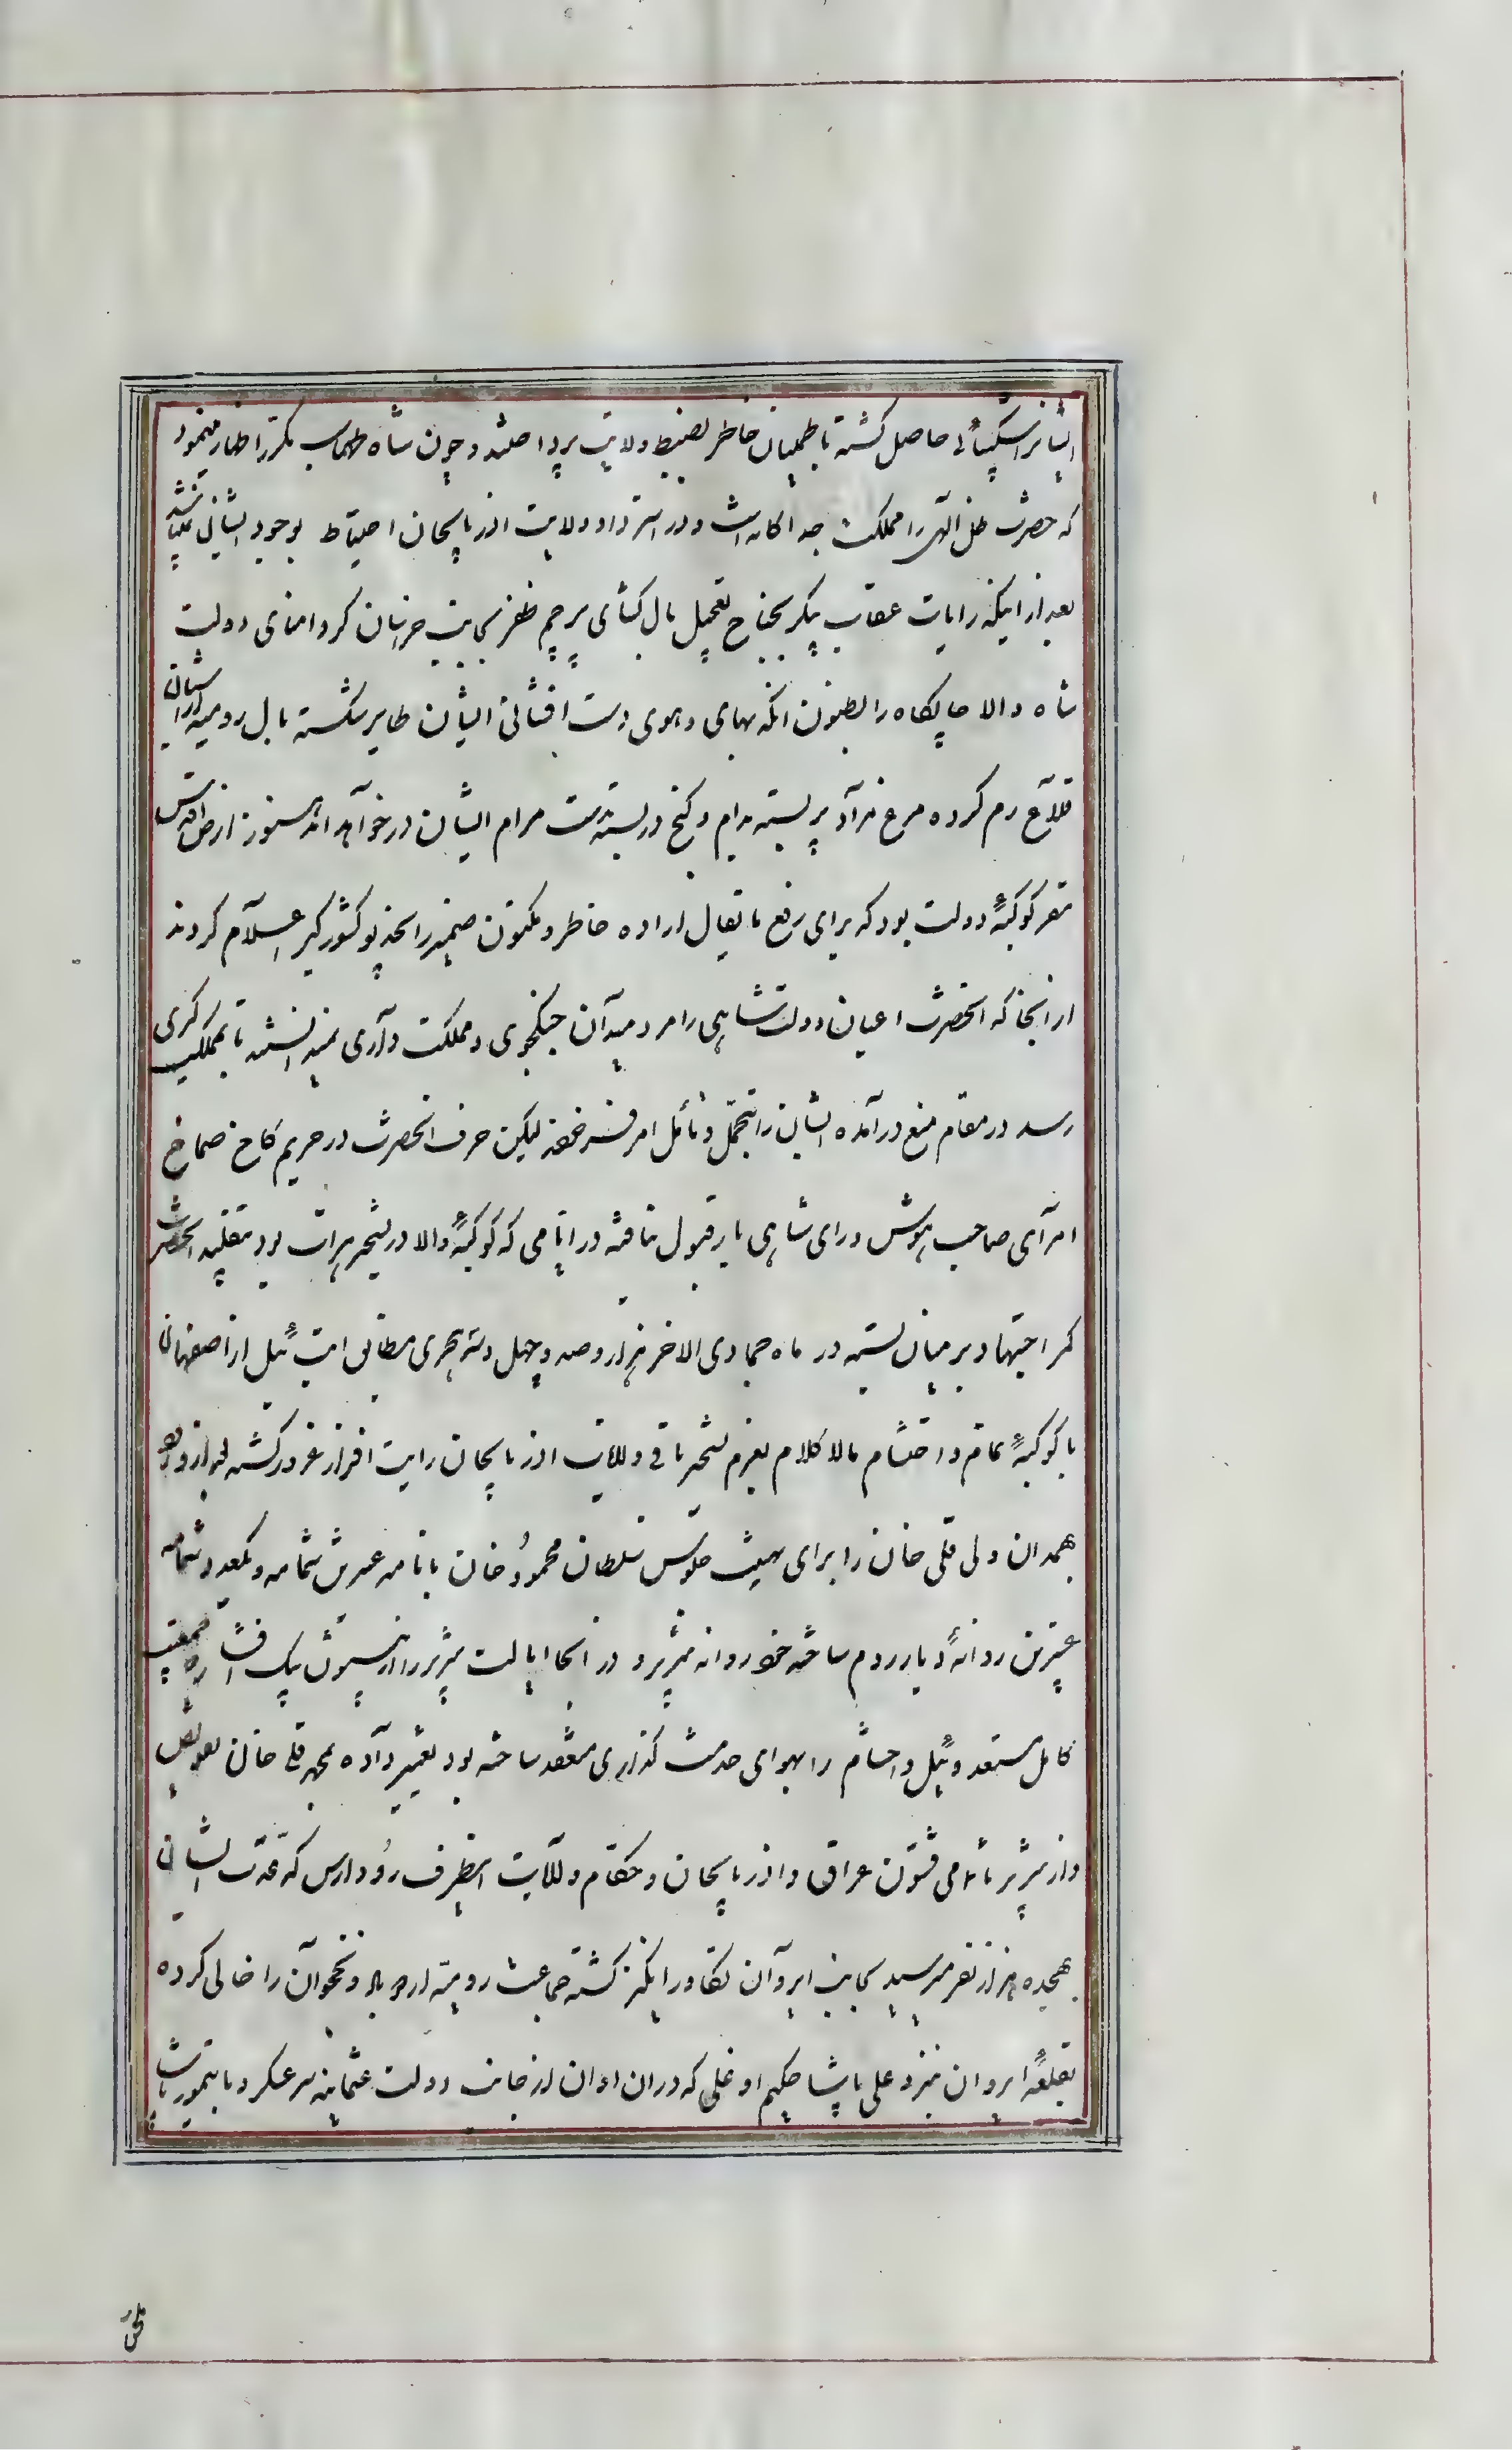 ایشانرا شکیبائی حاصل گشته باطمینان خاطر بضبط ولایت پرداختند و چون شاه طهماسب مکرر اظهار مینمود
که حضرت ظل الهی را مملکت جداگانه است و در استرداد ولایت اذربایجان احتیاط بوجود ایشان نمیباشد
بعد از اینکه رایات عقاب پیکر بجناح تعجیل بال گشای پرچم ظفر بجانب خراسان کرد امنای دولت
شاه والا جایگاه را بظنون انکه بهای و هوی دست افشانی ایشان طایر شکسته بال رومیه از اشیان
قلاع رم کرده مرغ مراد پر بسته بدام و گنج در بسته بدست مرام ایشان در خواهد امد هنوز ارض اقدس
مقر کوکبهٔ دولت بود که برای رفع ما یقال اراده خاطر و مکنون ضمیر را بخدیو کشورگیر اعلام کردند
از انجا که انحضرت اعیان دولت شاهی را مرد میدان جنگجوی و مملکت داری نمیدانستند تا بمملکت گیری
رسد در مقام منع درامده ایشان را بتحمل و تأمل امر فرمودند لیکن حرف انحضرت در حریم کاخ صماخ
امرای صاحب هوش و رای شاهی بار قبول نیافته در ایامی که کوکبهٔ والا در تسخیر هرات بود بتقلید انحضرت
کمر اجتهاد بر میان بسته در ماه جمادی الاخر هزار و صد و چهل و سه هجری مطابق ایت ئیل از اصفهان
با کوکبهٔ تمام و احتشام مالا کلام بعزم تسخیر باقی ولایات اذربایجان رایت افراز غرور گشته بعد از ورود
همدان ولی قلی خان را برای تهنیت جلوس سلطان محمود خان با نامه عنبرین شمامه و
عنبرین روانهٔ دیار روم ساخته خود روانه تبریز و در انجا ایالت تبریز را از بیستون بیک افشار که جمعیت
کامل مستعد و ئیل و احشام را بهوای خدمت گذاری منعقد ساخته بود تغییر داده بمحمد قلی خان تفویض
و از تبریز با تمامی قشون عراق و اذربایجان و حکام ولایات انطرف رود ارس که عدت ایشان
بهیجده هزار نفر میرسید بجانب ایروان تکاور انگیز گشته جماعت رومیه اردوباد و نخجوان را خالی کرده
بقلعهٔ ایروان نزد علی پاشا حکیم اوغلی که دران اوان از جانب دولت عثمانیه سرعسکر و با تیمور پاشا